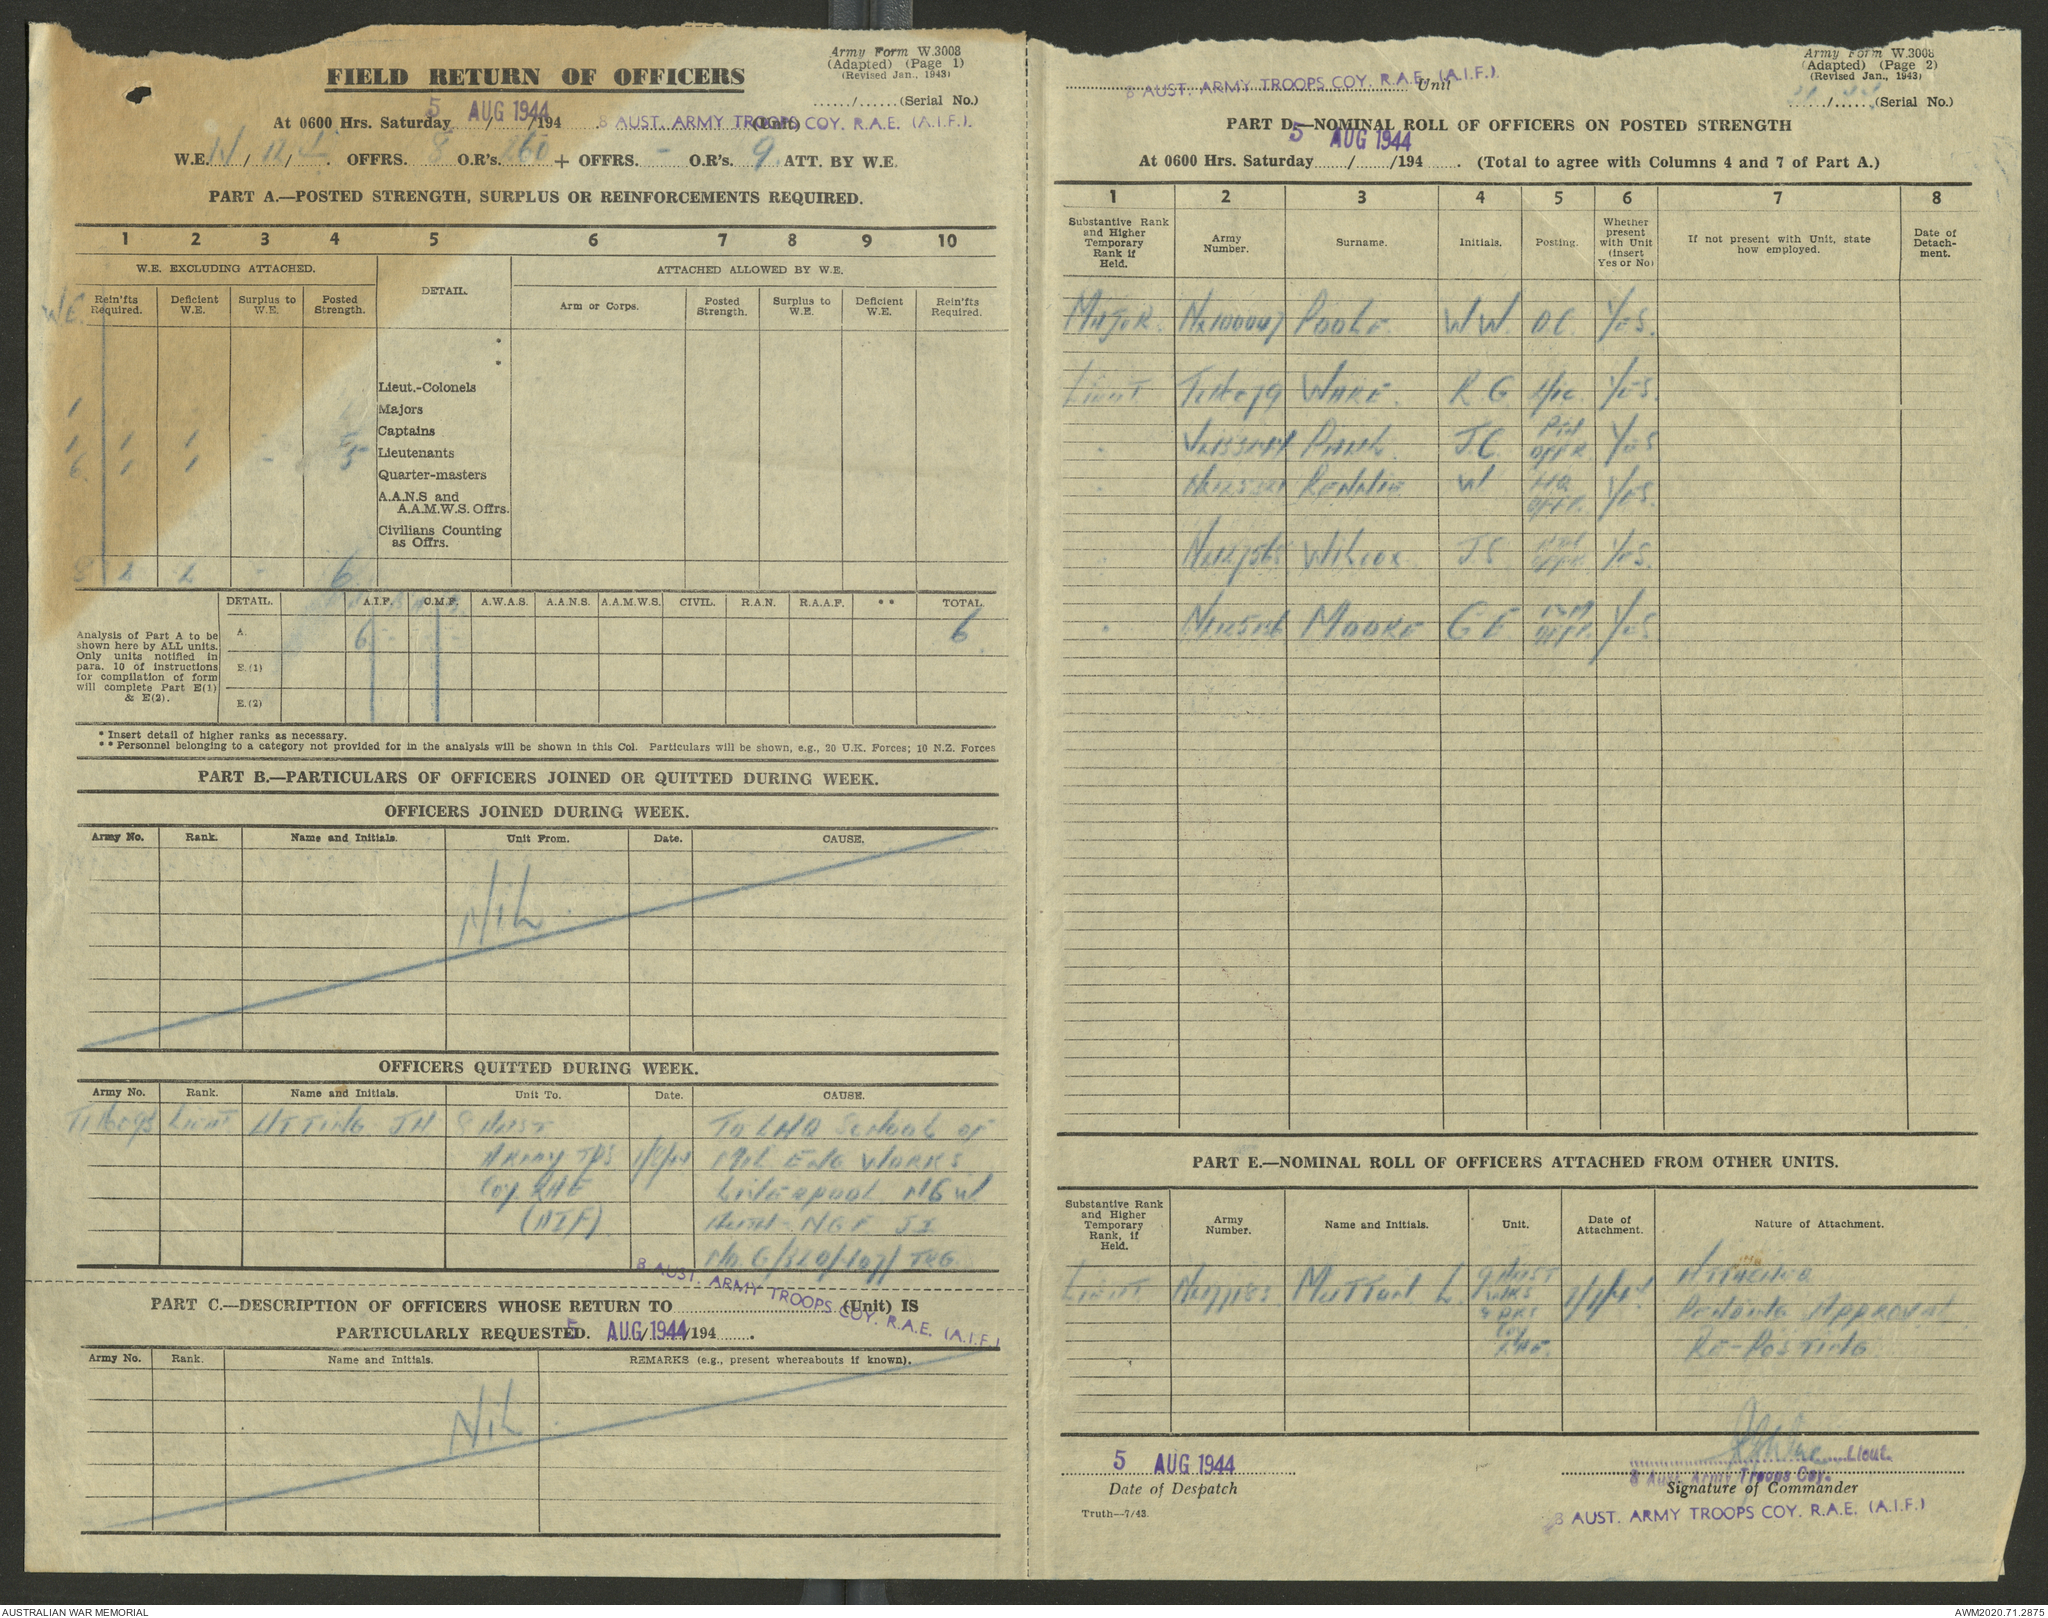 Army Form W.3008
(Adapted) (Page 1)
(Revised Jan., 1943)
FIELD RETURN OF OFFICERS
....../......(Serial No.)
At 0600 Hrs. Saturday ....../....../194 (Unit)
5 AUG 1944 8 AUST. ARMY TROOPS COY. R.A.E. (A.I.F.).
W.E. / / . OFFRS. 8 O.R's. 260 + OFFRS. - O.R's. 9 ATT. BY W.E.
PART A.—POSTED STRENGTH, SURPLUS OR REINFORCEMENTS REQUIRED.
1 2 3 4 5 6 7 8 9 10
W.E. EXCLUDING ATTACHED. DETAIL. ATTACHED ALLOWED BY W.E.
W.E. Rein'fts Required. Deficient W.E. Surplus to W.E. Posted Strength. Arm or Corps. Posted Strength. Surplus to W.E. Deficient W.E. Rein'fts Required.
*
*
Lieut.-Colonels
1 Majors
1 1 1 Captains
6 1 1 - 5 Lieutenants
Quarter-masters
A.A.N.S and
A.A.M.W.S. Offrs.
Civilians Counting
as Offrs.
8 2 2 - 6
DETAIL. A.I.F. C.M.F. A.W.A.S. A.A.N.S. A.A.M.W.S. CIVIL. R.A.N. R.A.A.F. ** TOTAL.
Analysis of Part A to be
shown here by ALL units.
Only units notified in
para. 10 of instructions
for compilation of form
will complete Part E(1)
& E(2).
A. 6 - - 6
E.(1)
E.(2)
* Insert detail of higher ranks as necessary.
** Personnel belonging to a category not provided for in the analysis will be shown in this Col. Particulars will be shown, e.g., 20 U.K. Forces; 10 N.Z. Forces
PART B.—PARTICULARS OF OFFICERS JOINED OR QUITTED DURING WEEK.
OFFICERS JOINED DURING WEEK.
Army No. Rank. Name and Initials. Unit From. Date. CAUSE.
NIL
OFFICERS QUITTED DURING WEEK.
Army No. Rank. Name and Initials. Unit To. Date. CAUSE.
Lieut UTTING JH 8 AUST TO LHQ School of
ARMY TPS MIL ENG WORKS
Coy RAE Liverpool NSW
(AIF) Auth - NGF JI
No. G/ TRG
8 AUST. ARMY TROOPS COY. R.A.E. (A.I.F.)
PART C.—DESCRIPTION OF OFFICERS WHOSE RETURN TO ............ (Unit) IS
PARTICULARLY REQUESTED. 5 AUG 1944 /194 ...... .
Army No. Rank. Name and Initials. REMARKS (e.g., present whereabouts if known).
NIL
Army Form W.3008
(Adapted) (Page 2)
(Revised Jan., 1943)
8 AUST. ARMY TROOPS COY. R.A.E. (A.I.F.). Unit
....../......(Serial No.)
PART D.—NOMINAL ROLL OF OFFICERS ON POSTED STRENGTH
5 AUG 1944
At 0600 Hrs. Saturday ....../....../194 ...... . (Total to agree with Columns 4 and 7 of Part A.)
1 2 3 4 5 6 7 8
Substantive Rank and Higher Temporary Rank if Held. Army Number. Surname. Initials. Posting. Whether present with Unit (insert Yes or No) If not present with Unit, state how employed. Date of Detachment.
MAJOR. NX100047 POOLE. WW. O.C. YES.
LIEUT WARE. R G YES.
" J.C OFFR YES
" RENNIE W HQ OFFR. YES.
" WILCOX J.S OFFR YES.
" MOORE G E OFFR. YES
PART E.—NOMINAL ROLL OF OFFICERS ATTACHED FROM OTHER UNITS.
Substantive Rank and Higher Temporary Rank, if Held. Army Number. Name and Initials. Unit. Date of Attachment. Nature of Attachment.
LIEUT MUTTON L. 9 AUST Coy RAE. ATTACHED
Pending Approval
RE-POSTING
5 AUG 1944
Date of Despatch
Truth—7/43.
Lieut.
8 Aust. Army Troops Coy.
Signature of Commander
8 AUST. ARMY TROOPS COY. R.A.E. (A.I.F.)
AUSTRALIAN WAR MEMORIAL
AWM2020.71.2875